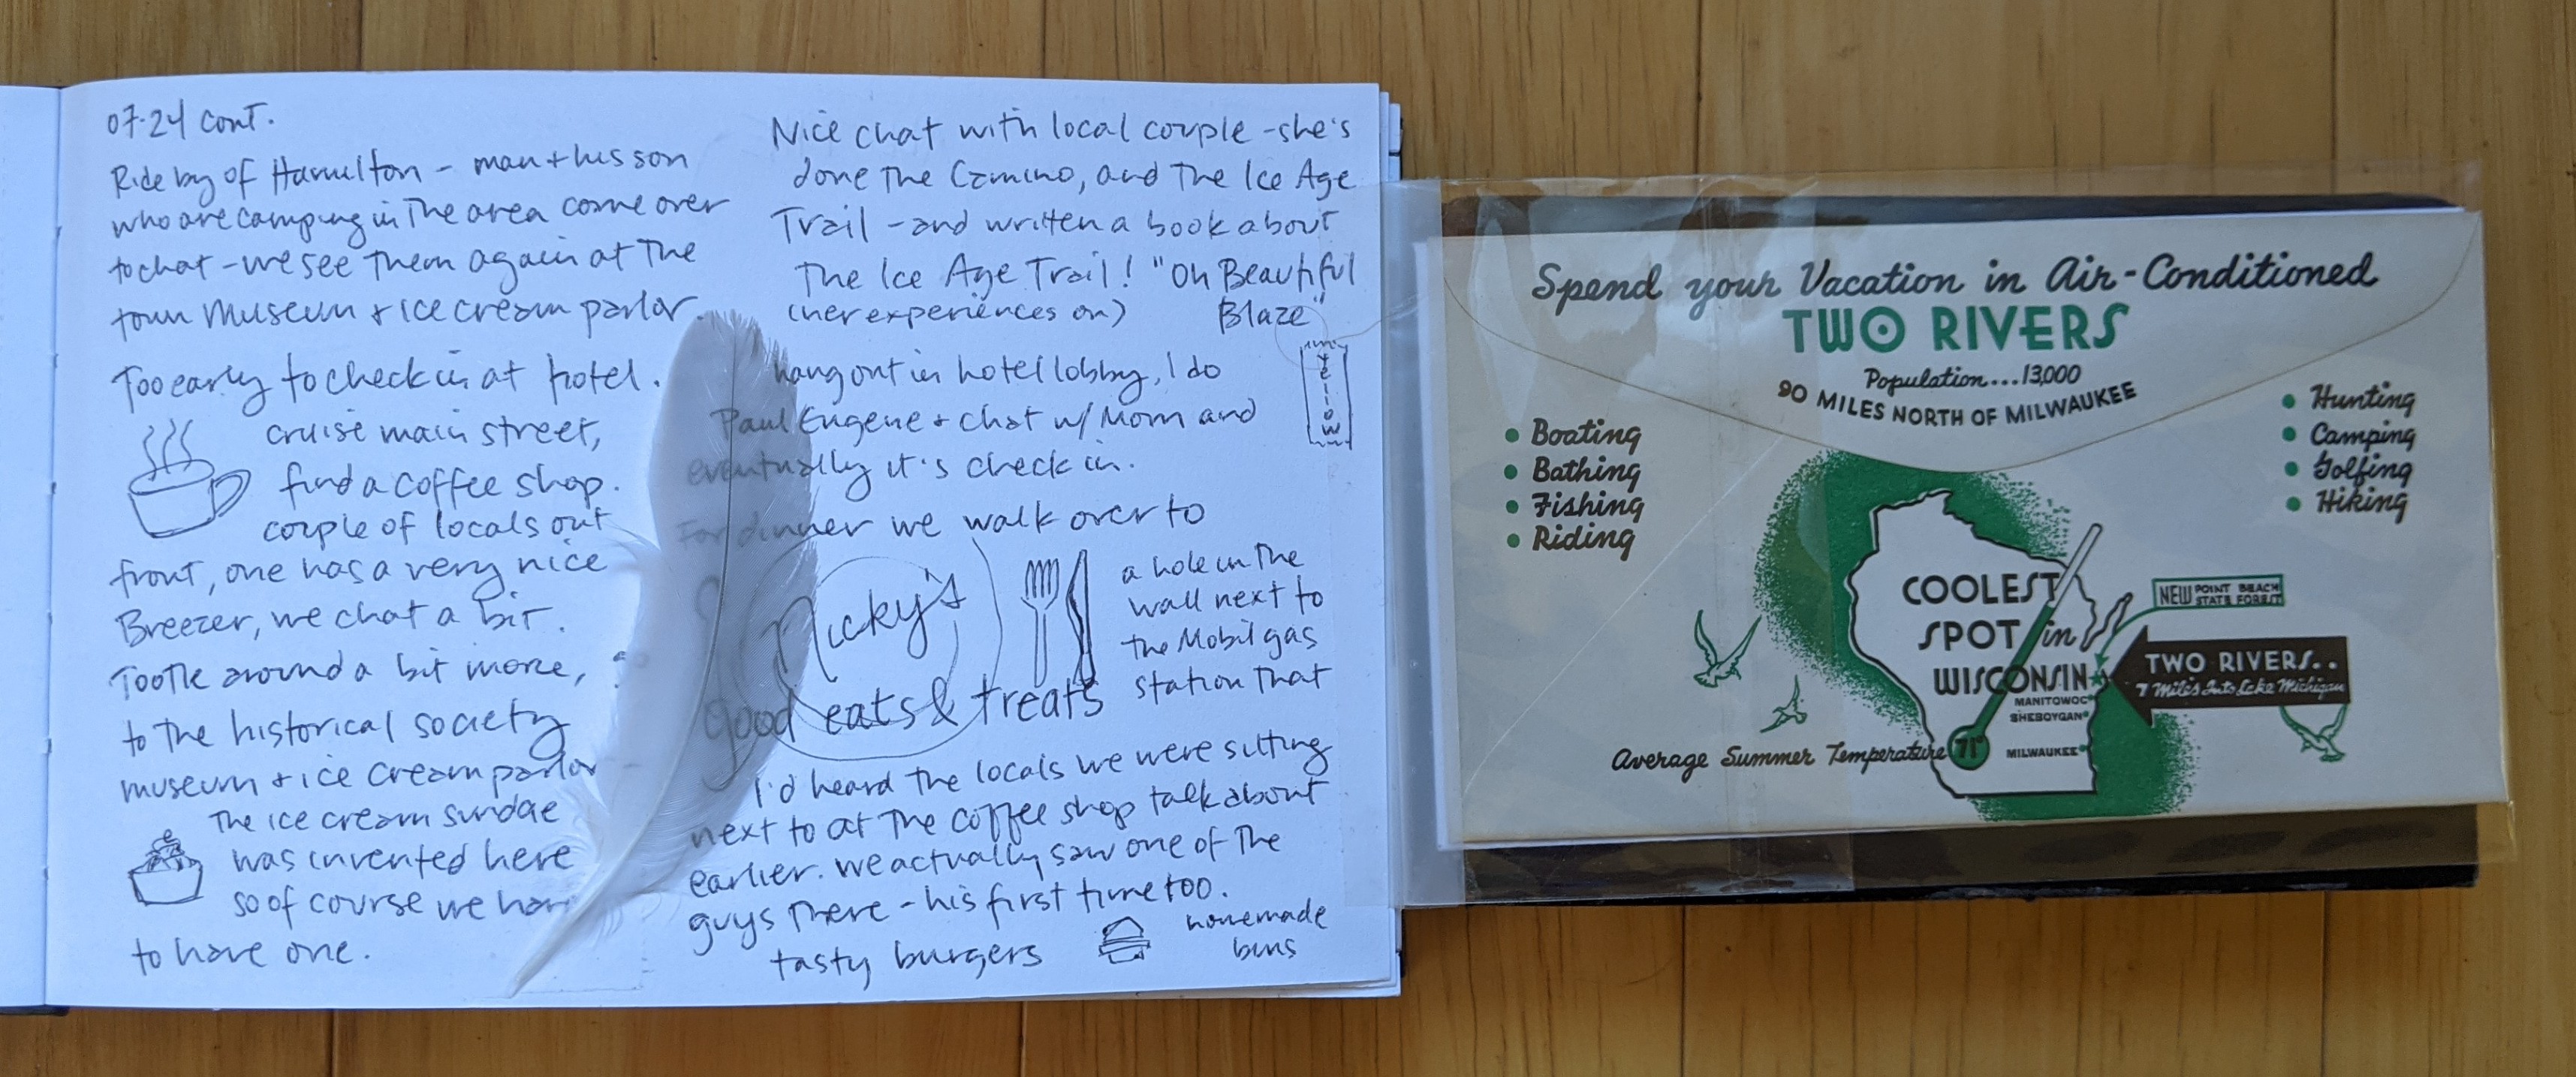 07.24 cont.
Ride by of Hamilton - man + his son
who are camping in the area come over
to chat - we see them again at the
town museum + ice cream parlor.
Too early to check in at hotel.
cruise main street,
find a coffee shop.
couple of locals out
front, one has a very nice
Breezer, we chat a bit.
Tootle around a bit more,
to the historical society
museum + ice cream parlor
The ice cream sundae
was invented here
so of course we have
to have one.
Nice chat with local couple - she's
done the Camino, and the Ice Age
Trail - and written a book about
the Ice Age Trail! "Oh Beautiful
(her experiences on) Blaze"
yellow
hang out in hotel lobby, I do
Paul Eugene + chat w/ Mom and
eventually it's check in.
For dinner we walk over to
Nicky's
good eats & treats
a hole in the
wall next to
the Mobil gas
station that
I'd heard the locals we were sitting
next to at the coffee shop talk about
earlier. we actually saw one of the
guys there - his first time too.
tasty burgers
homemade
buns
Spend your Vacation in Air-Conditioned
TWO RIVERS
Population...13,000
90 MILES NORTH OF MILWAUKEE
• Boating
• Bathing
• Fishing
• Riding
• Hunting
• Camping
• Golfing
• Hiking
COOLEST
SPOT in
WISCONSIN
NEW POINT BEACH
STATE FOREST
TWO RIVERS..
7 Miles Into Lake Michigan
MANITOWOC
SHEBOYGAN
MILWAUKEE
Average Summer Temperature 71°